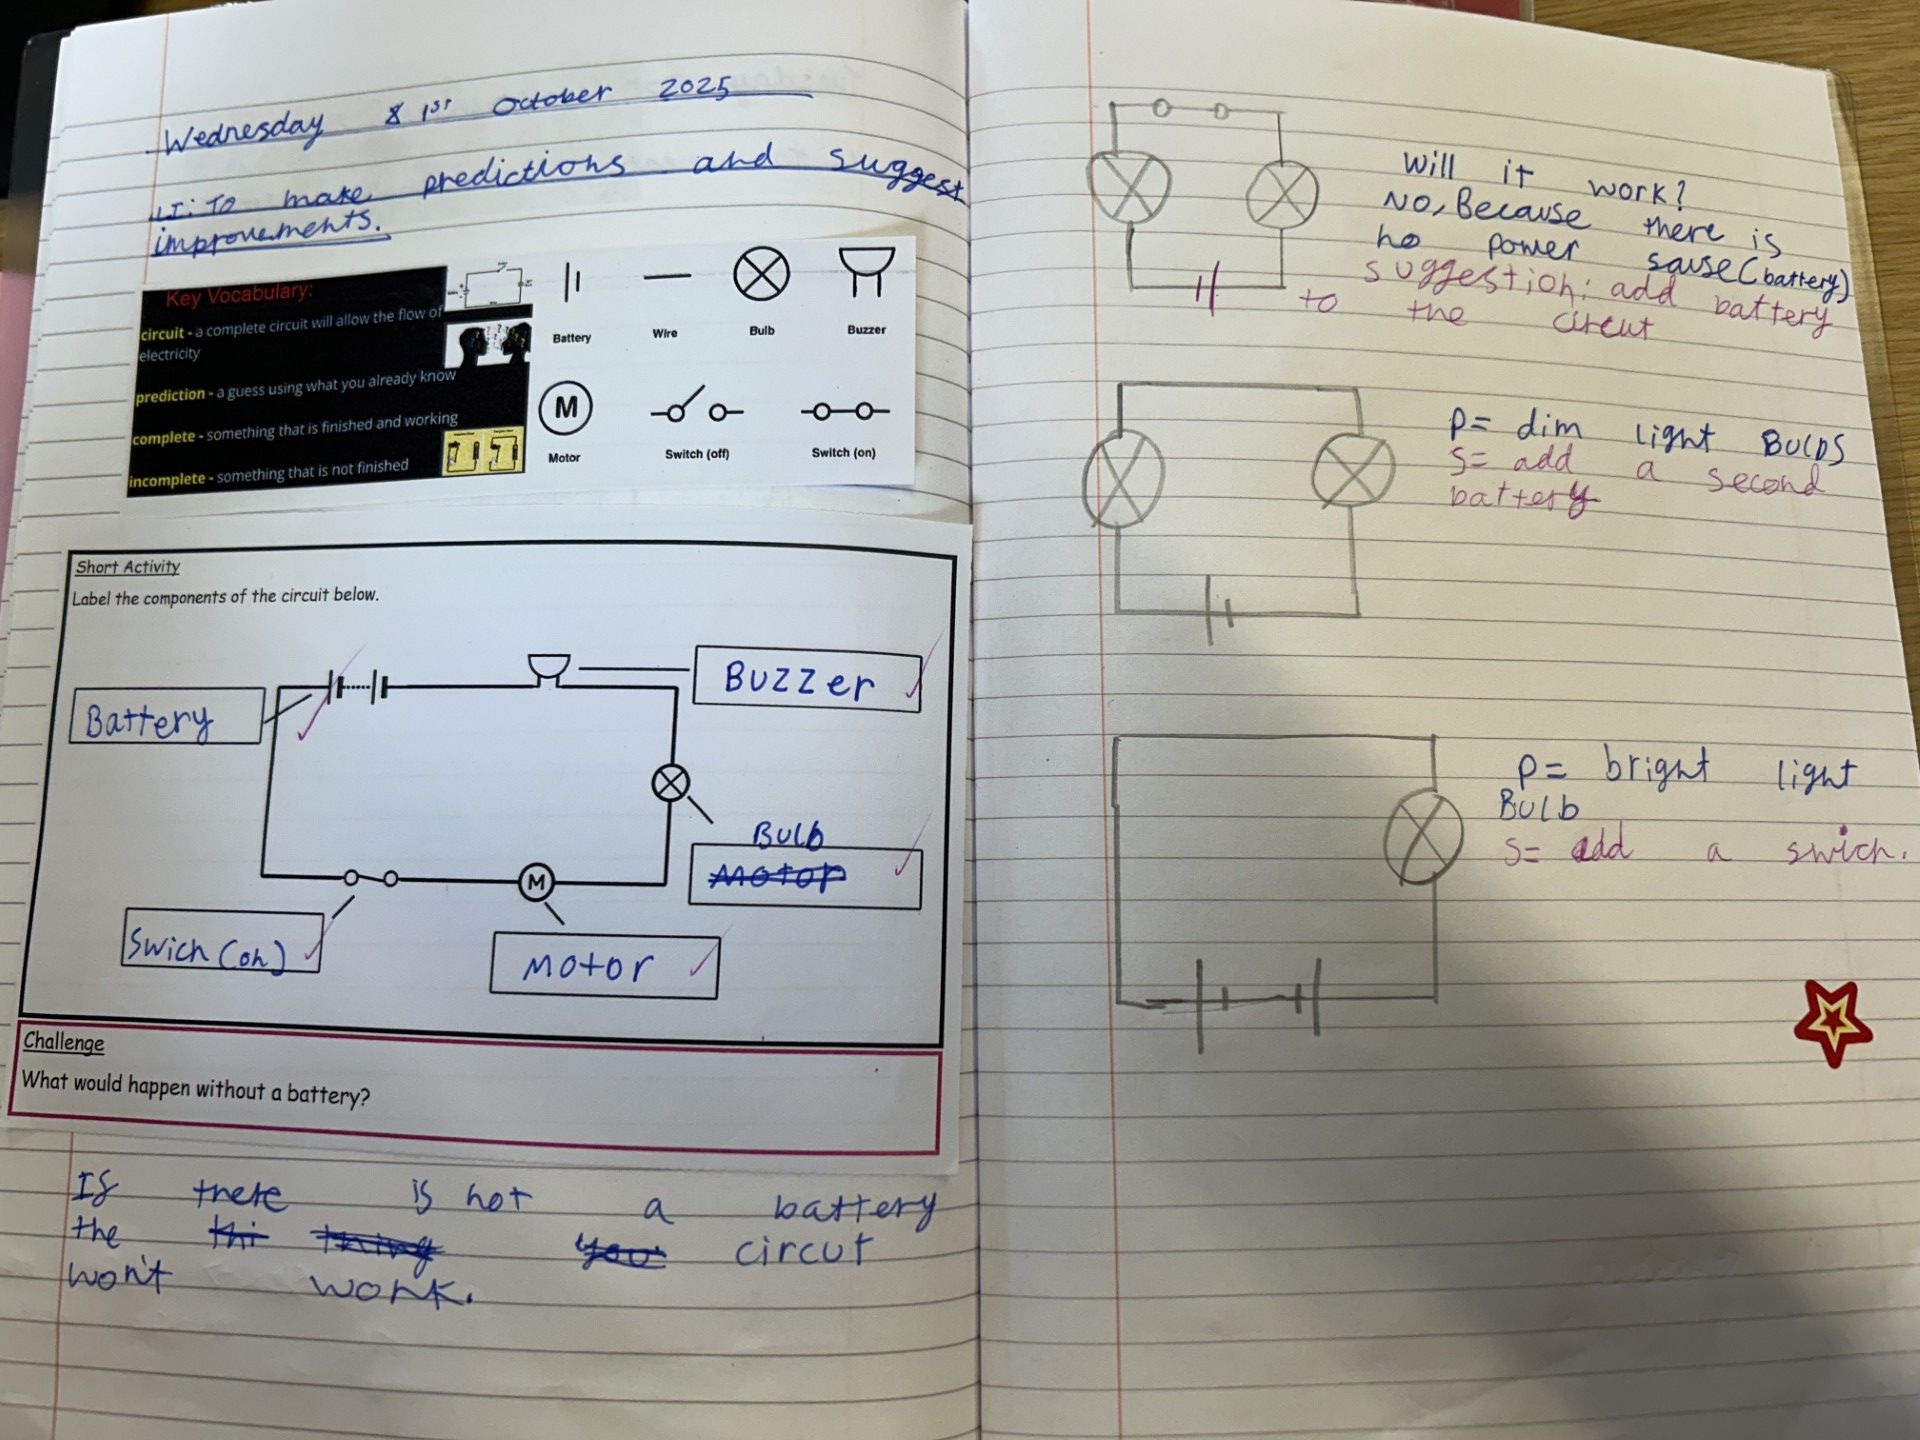 Wednesday 1st October 2025
LI: To make predictions and suggest
improvements.
Key Vocabulary:
circuit - a complete circuit will allow the flow of
electricity
prediction - a guess using what you already know
complete - something that is finished and working
incomplete - something that is not finished
Battery
Wire
Bulb
Buzzer
M
Motor
Switch (off)
Switch (on)
Short Activity
Label the components of the circuit below.
Battery
Buzzer
Bulb
Motor
M
Swich (on)
Motor
Challenge
What would happen without a battery?
If there is not a battery
the thi thing you circut
won't work.
Will it work?
No, Because there is
no power sause (battery)
suggestion: add battery
to the circut
P= dim light Bulbs
S= add a second
battery
P= bright light
Bulb
S= add a swich.